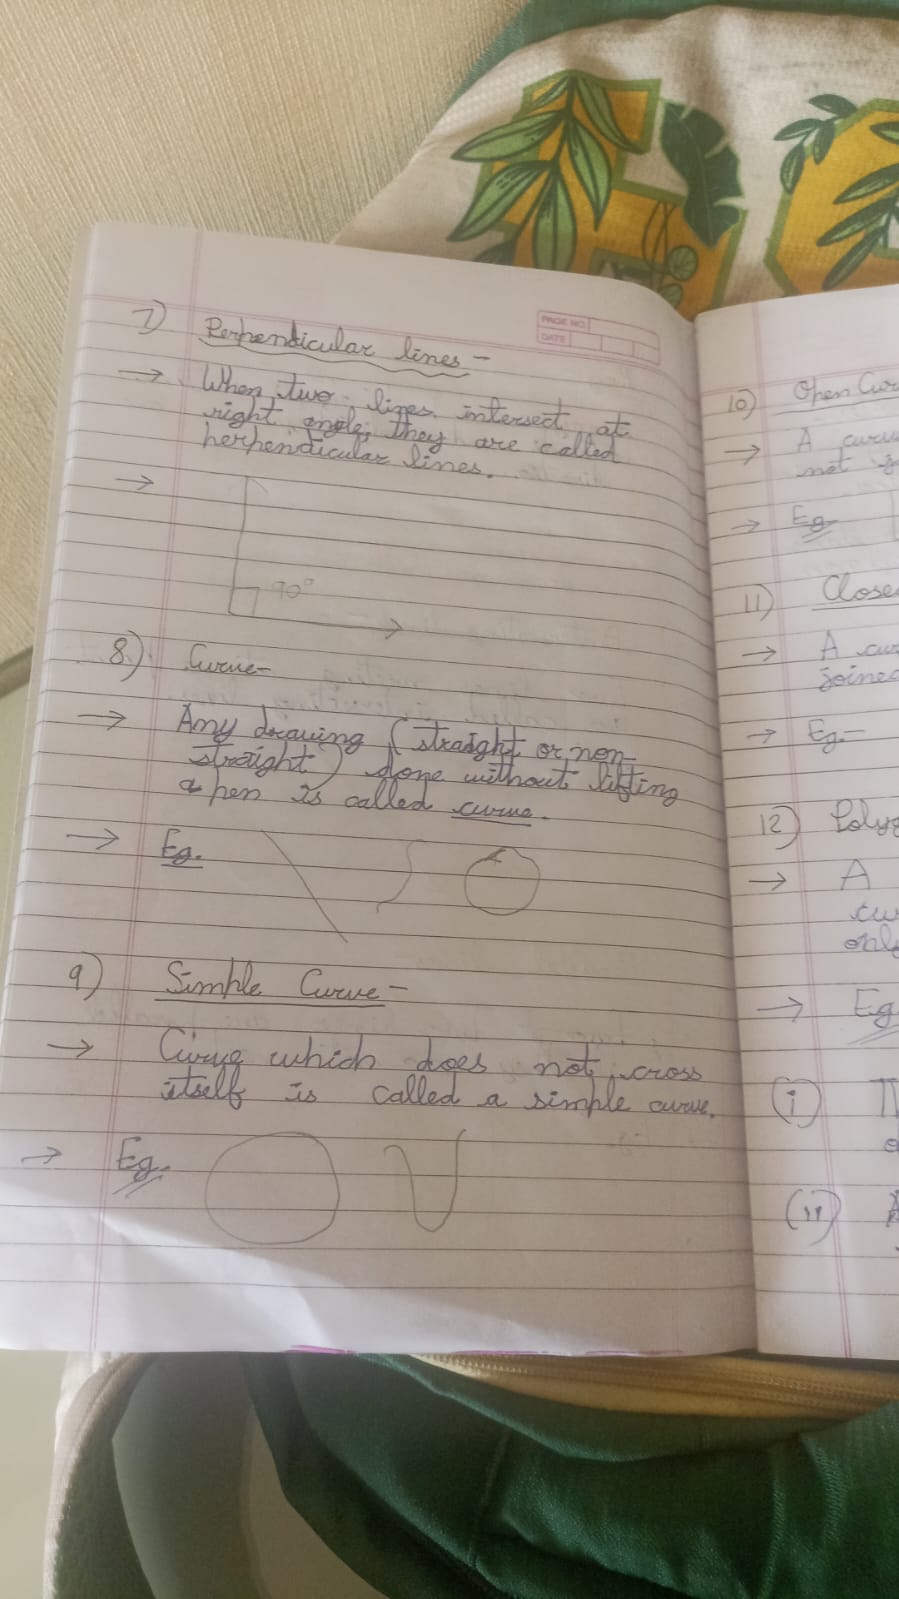 PAGE NO.
DATE
7) Perpendicular lines -
→ When two lines intersect at
right angle, they are called
perpendicular lines.
→
90°
8) Curve-
→ Any drawing (straight or non-
straight) done without lifting
a pen is called curve.
→ Eg.
9) Simple Curve -
→ Curve which does not cross
itself is called a simple curve.
→ Eg.
10) Open Cur
→ A curv
not j
→ Eg
11) Close
→ A cu
joined
→ Eg.-
12) Polyg
→ A
cu
only
→ Eg
(i) T
(ii)